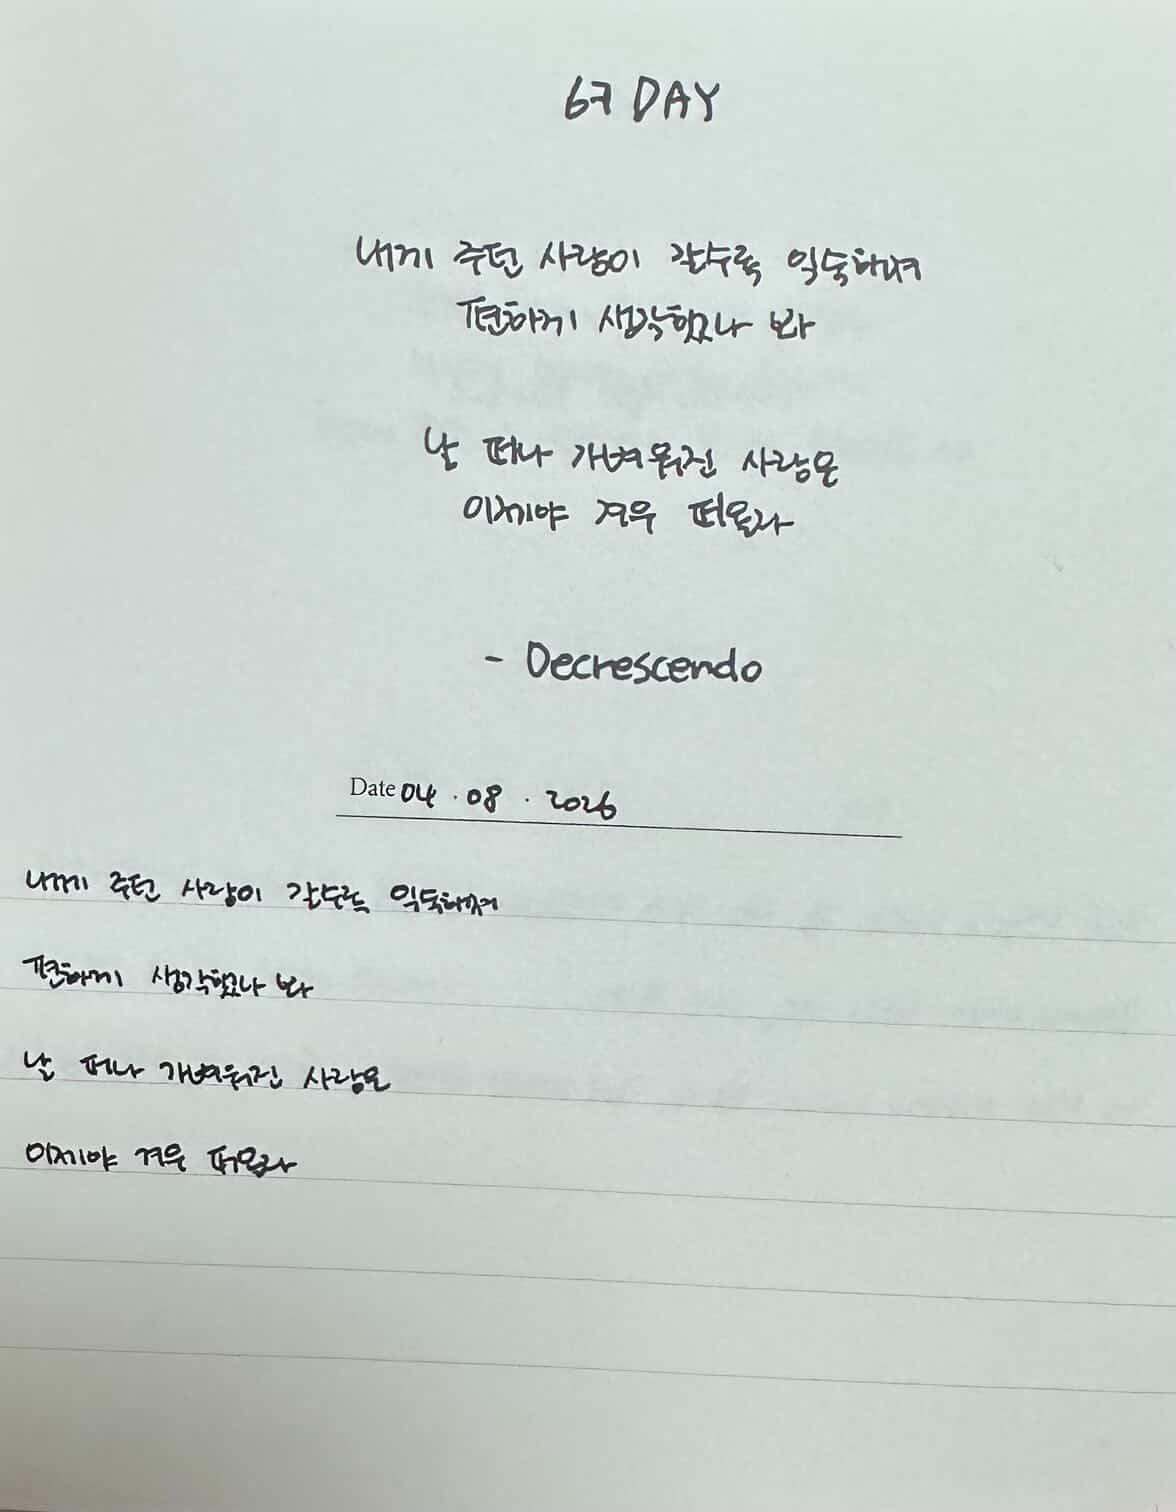 67 DAY
내게 주던 사랑이 갈수록 익숙해져
편하게 생각했나 봐
날 떠나 가벼워진 사랑은
이제야 겨우 떠올라
- Decrescendo
Date 04 . 08 . 2026
내게 주던 사랑이 갈수록 익숙해져
편하게 생각했나 봐
날 떠나 가벼워진 사랑은
이제야 겨우 떠올라